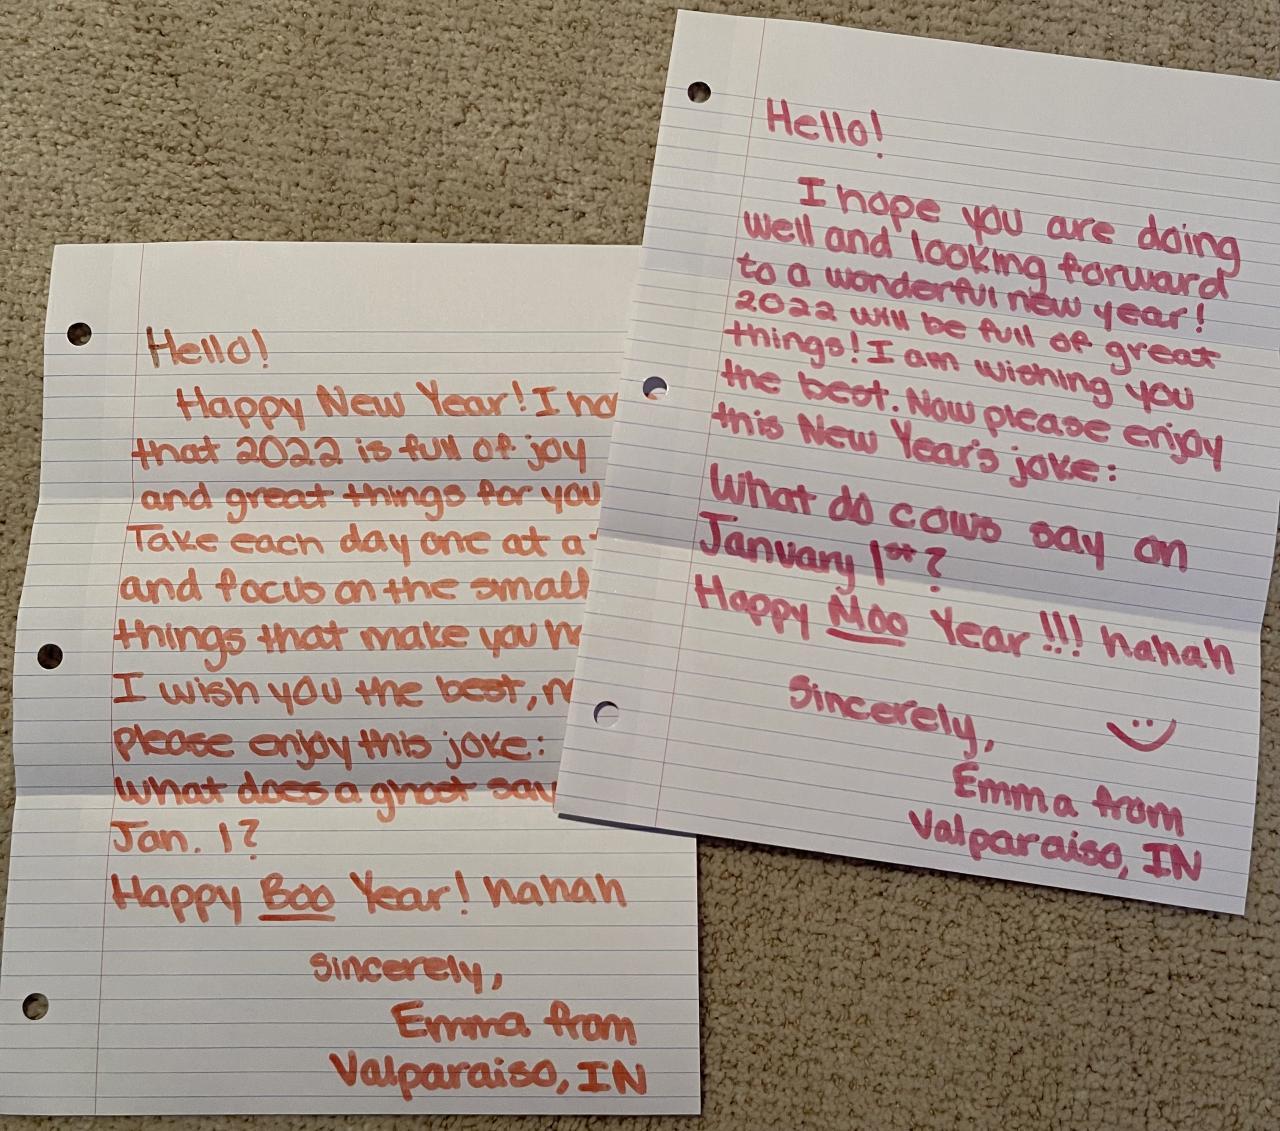 Hello!
Happy New Year! I
that 2022 is full of joy
and great things for you
Take each day one at a
and focus on the small
things that make you
I wish you the best,
please enjoy this joke:
What does a ghost say
Jan. 1?
Happy Boo Year! hahah
Sincerely,
Emma from
Valparaiso, IN
Hello!
I hope you are doing
well and looking forward
to a wonderful new year!
2022 will be full of great
things! I am wishing you
the best. Now please enjoy
this New Year's joke:
What do cows say on
January 1st?
Happy Moo Year!!! hahah
Sincerely,
Emma from
Valparaiso, IN